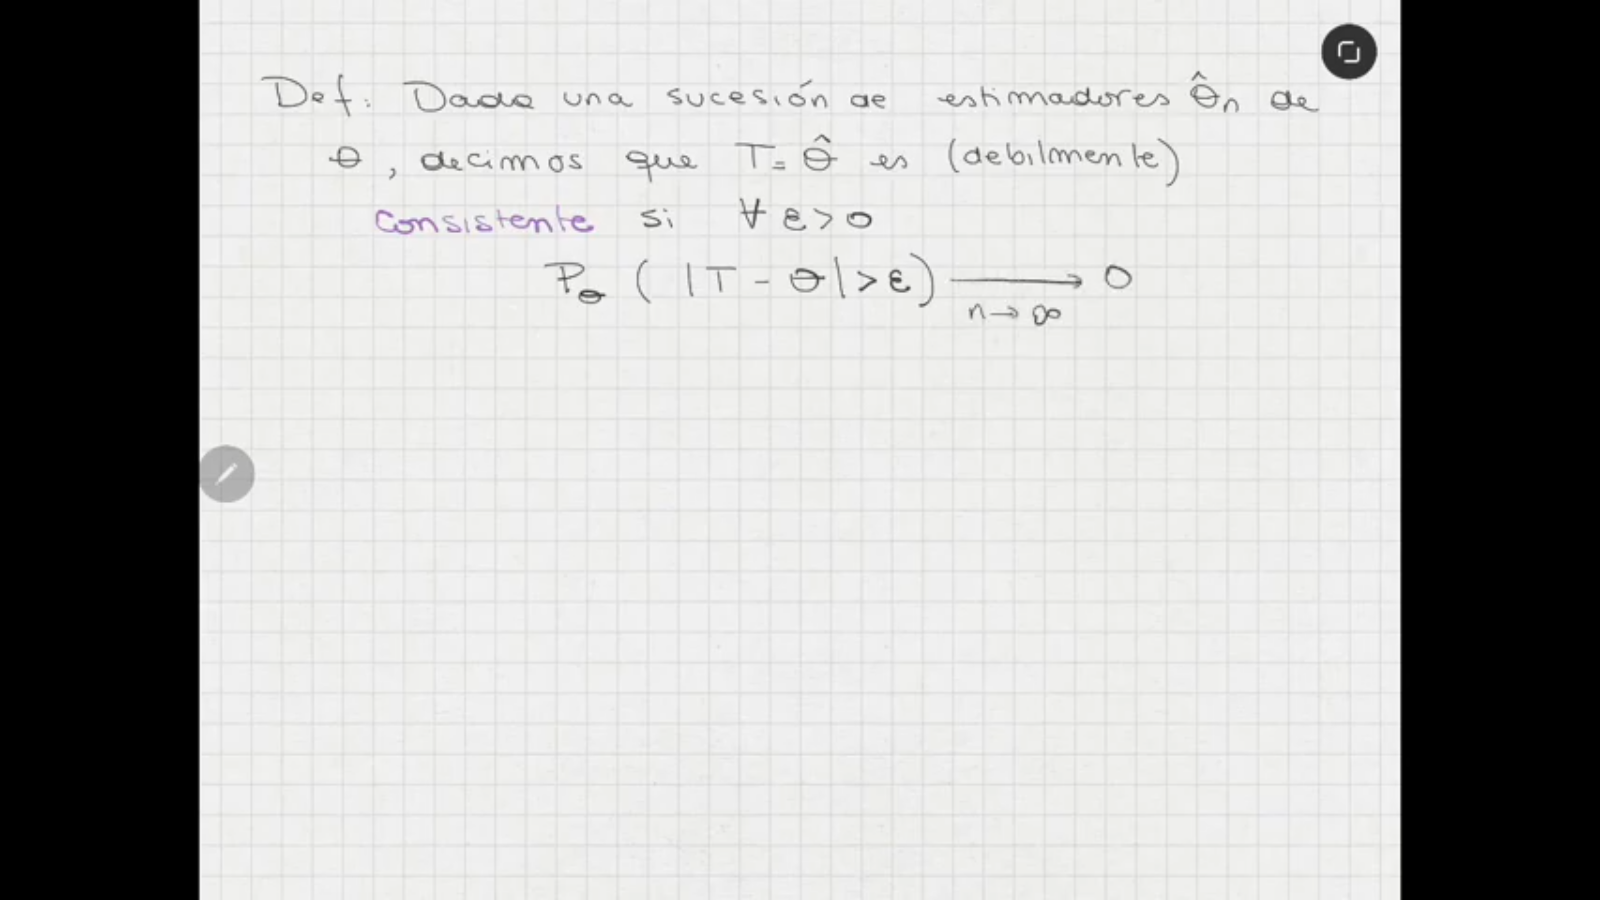 Def: Dada una sucesión de estimadores θ̂n de
θ, decimos que T = θ̂ es (debilmente)
consistente si ∀ ε > 0
Pθ ( |T - θ| > ε ) ⟶ 0
n → ∞